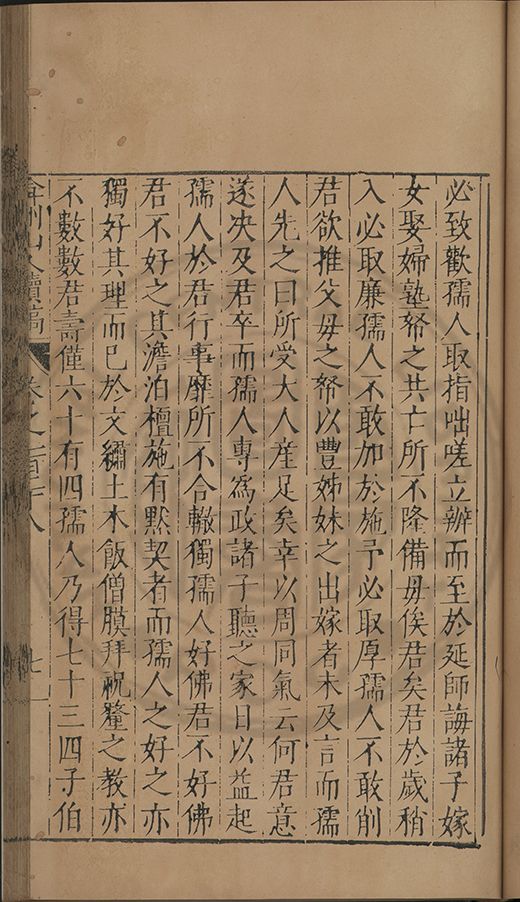 必致歡孺人取指咄嗟立辦而至於延師誨諸子嫁
女娶婦塾帑之共亡所不隆備毋俟君矣君於歲稍
入必取廉孺人不敢加於施予必取厚孺人不敢削
君欲推父毋之帑以豐姊妹之出嫁者未及言而孺
人先之曰所受大人産足矣幸以周同氣云何君意
遂决及君卒而孺人專爲政諸子聽之家日以益起
孺人於君行事靡所不合轍獨孺人好佛君不好佛
君不好之其澹泊檀施有默契者而孺人之好之亦
獨好其理而已於文繡土木飯僧膜拜祝釐之教亦
不數數君壽僅六十有四孺人乃得七十三四子伯
山人續稿 卷之一百十八 七